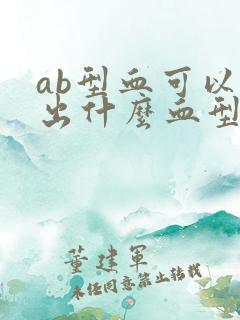 ab型血可以
出什麼血型
董建軍
未经同意禁止转载